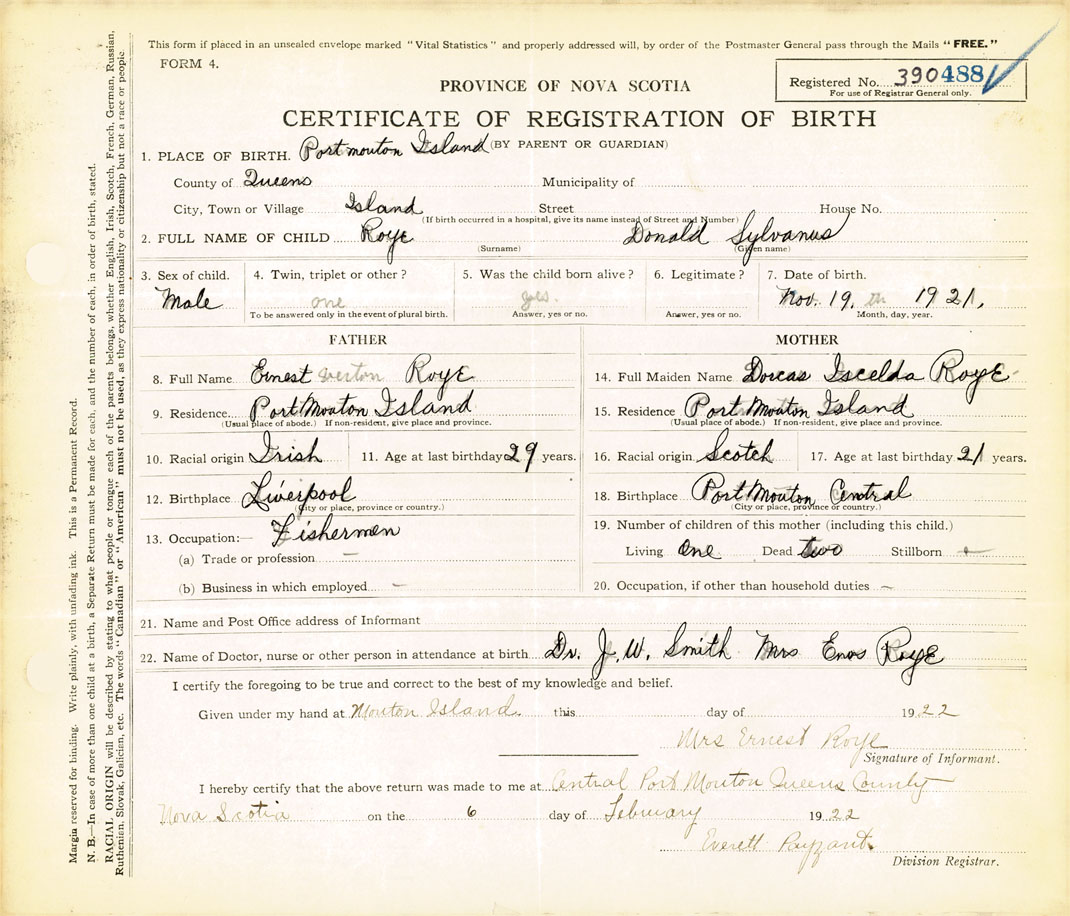 This form if placed in an unsealed envelope marked "Vital Statistics" and properly addressed will, by order of the Postmaster General pass through the Mails "FREE."
FORM 4.
PROVINCE OF NOVA SCOTIA
Registered No. 390488
For use of Registrar General only.
CERTIFICATE OF REGISTRATION OF BIRTH
(BY PARENT OR GUARDIAN)
1. PLACE OF BIRTH. Portmouton Island
County of Queens Municipality of
City, Town or Village Island Street House No.
(If birth occurred in a hospital, give its name instead of Street and Number)
2. FULL NAME OF CHILD Roye Donald Sylvanus
(Surname) (Given name)
3. Sex of child. 4. Twin, triplet or other? 5. Was the child born alive? 6. Legitimate? 7. Date of birth.
Male one yes. Nov. 19 th 1921.
To be answered only in the event of plural birth. Answer, yes or no. Answer, yes or no. Month, day, year.
FATHER MOTHER
8. Full Name Ernest Roye 14. Full Maiden Name Dorcas Iscelda Roye
9. Residence Port Mouton Island 15. Residence Port Mouton Island
(Usual place of abode.) If non-resident, give place and province. (Usual place of abode.) If non-resident, give place and province.
10. Racial origin Irish 11. Age at last birthday 29 years. 16. Racial origin Scotch 17. Age at last birthday 21 years.
12. Birthplace Liverpool 18. Birthplace Port Mouton Central
(City or place, province or country.) (City or place, province or country.)
13. Occupation:— Fishermen 19. Number of children of this mother (including this child.)
(a) Trade or profession — Living One Dead two Stillborn —
(b) Business in which employed — 20. Occupation, if other than household duties —
21. Name and Post Office address of Informant
22. Name of Doctor, nurse or other person in attendance at birth Dr. J. W. Smith Mrs Enos Roye
I certify the foregoing to be true and correct to the best of my knowledge and belief.
Given under my hand at Mouton Island this day of 1922
Mrs Ernest Roye
Signature of Informant.
I hereby certify that the above return was made to me at Central Port Mouton Queens County
Nova Scotia on the 6 day of February 1922
Everett Payzant
Division Registrar.
Margin reserved for binding. Write plainly, with unfading ink. This is a Permanent Record.
N. B.—In case of more than one child at a birth, a Separate Return must be made for each, and the number of each, in order of birth, stated.
RACIAL ORIGIN will be described by stating to what people or tongue each of the parents belongs, whether English, Irish, Scotch, French, German, Russian,
Ruthenian, Slovak, Galician, etc. The words "Canadian" or "American" must not be used, as they express nationality or citizenship but not a race or people.